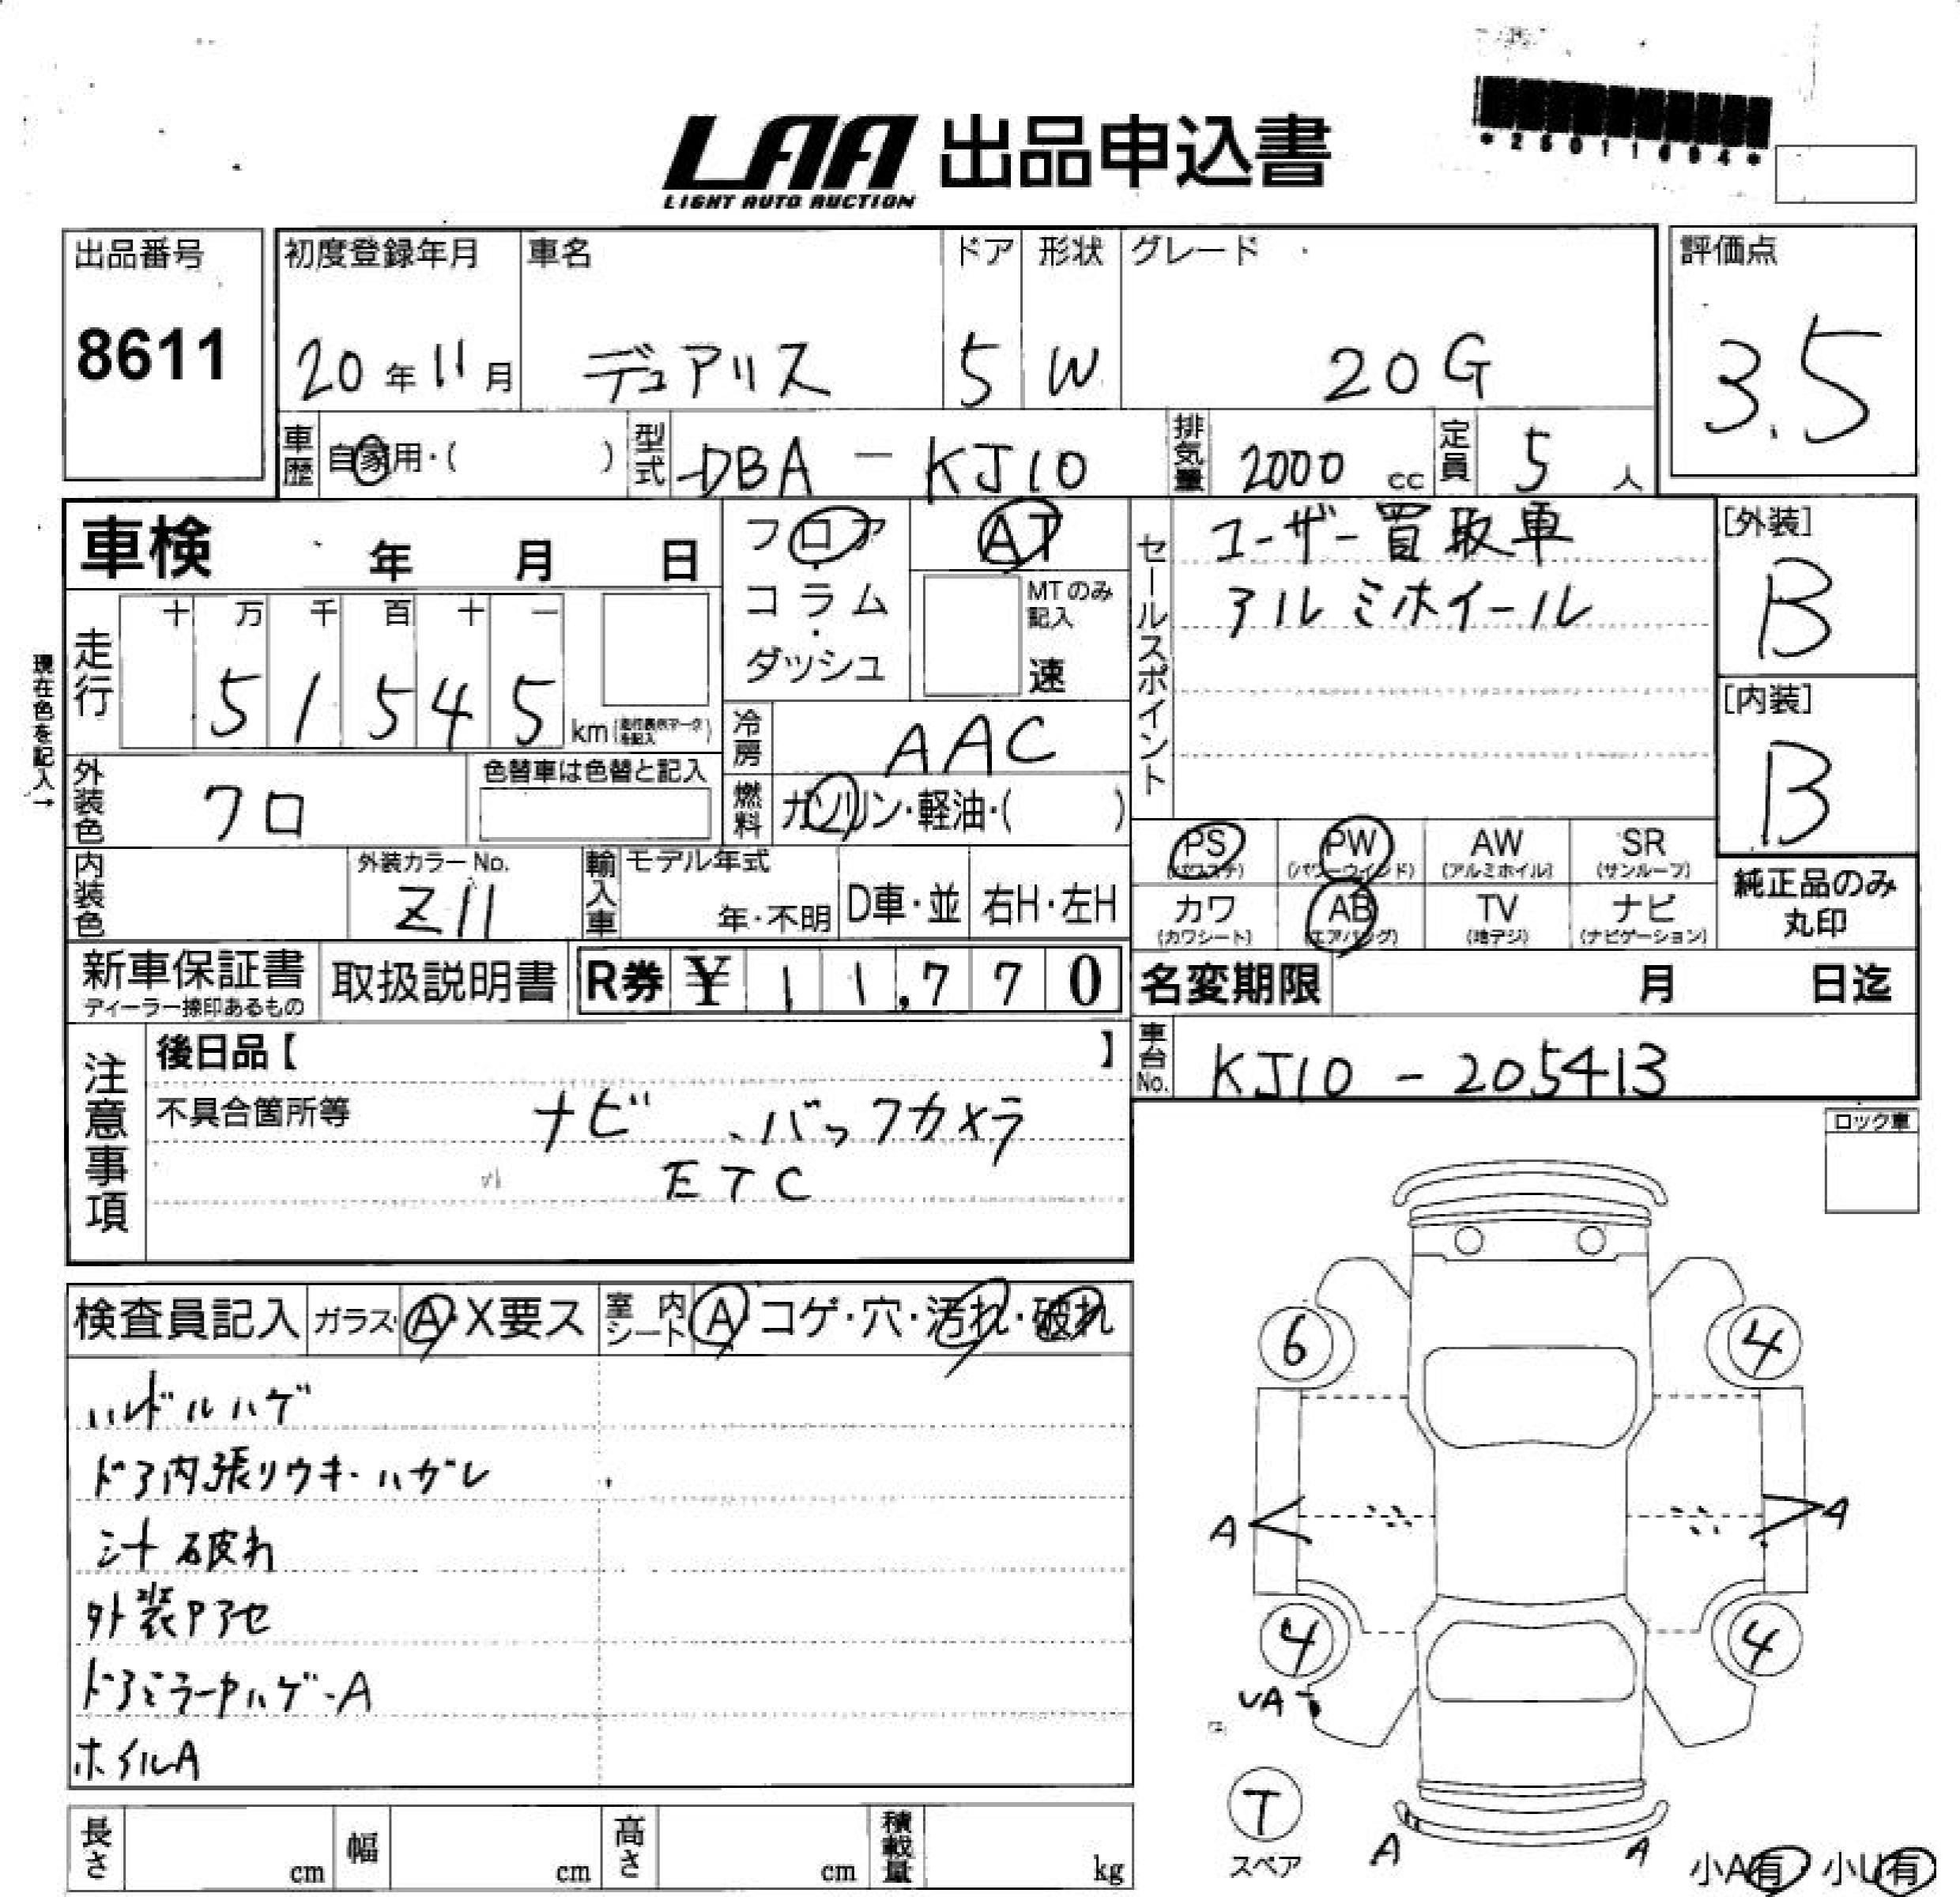 LAA 出品申込書
LIGHT AUTO AUCTION
*25011694*
出品番号
8611
初度登録年月 車名 ドア 形状 グレード
20年11月 デュアリス 5 W 20G
評価点
3.5
車歴 自家用・( ) 型式 DBA-KJ10 排気量 2000 cc 定員 5 人
車検 年 月 日
フロア
コラム
・
ダッシュ
AT
MTのみ
記入
速
セールスポイント
ユーザー買取車
アルミホイール
[外装]
B
[内装]
B
現在色を記入→
走行
十 万 千 百 十 一
5 1 5 4 5 km
冷房 AAC
外装色 クロ
色替車は色替と記入
燃料 ガソリン・軽油・( )
内装色
外装カラーNo.
Z11
輸入車
モデル年式
年・不明
D車・並 右H・左H
PS PW AW SR
(パワステ) (パワーウインド) (アルミホイル) (サンルーフ)
カワ AB TV ナビ
(カワシート) (エアバッグ) (地デジ) (ナビゲーション)
純正品のみ
丸印
新車保証書
ディーラー捺印あるもの
取扱説明書
R券 ¥ 1 1,7 7 0
名変期限 月 日迄
車台No. KJ10-205413
注意事項
後日品【 】
不具合箇所等 ナビ、バックカメラ
ETC
ロック車
検査員記入 ガラス A・X要ス 室内シート A・コゲ・穴・汚れ・破れ
ハンドルハゲ
ドア内張リウキ・ハガレ
シート破れ
外装アセ
ドアミラーハゲ・A
ホイルA
6 4
A A
4 4
UA
T
スペア
A A
小A有 小U有
長さ cm 幅 cm 高さ cm 積載量 kg